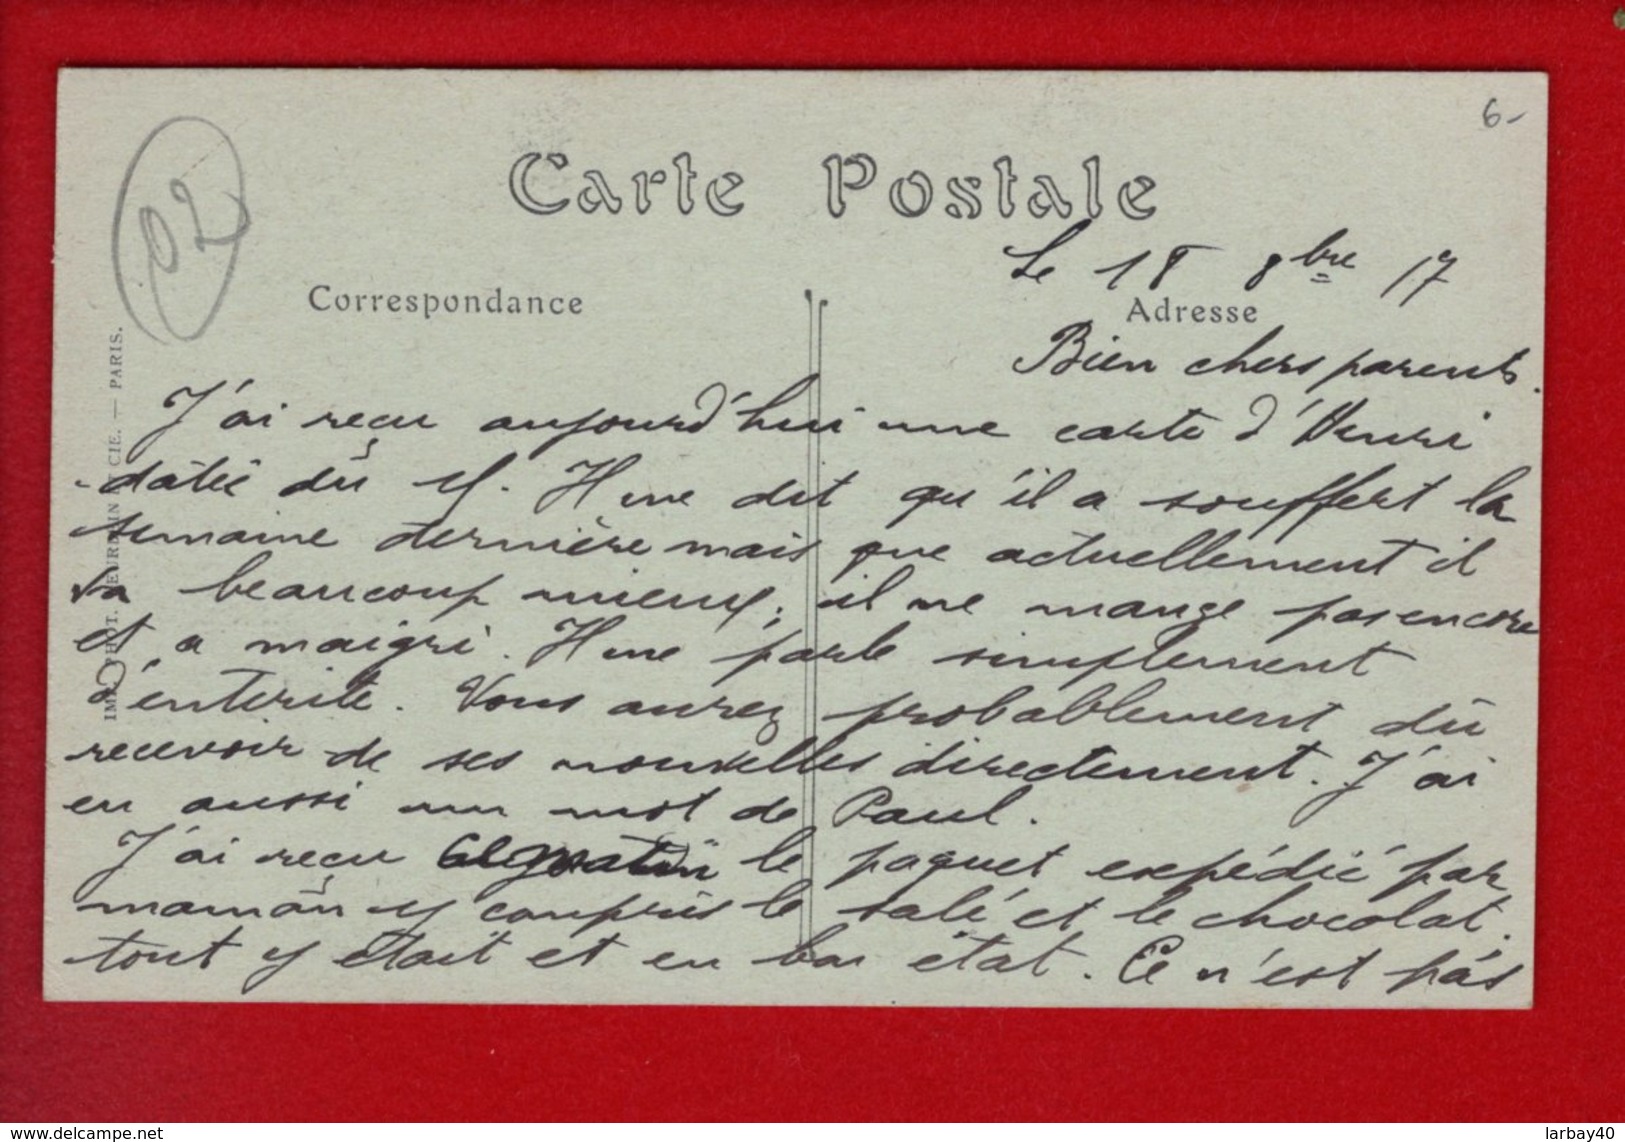 6-
02
Carte Postale
Le 18 8bre 17
Correspondance
Adresse
Bien chers parents.
J'ai reçu aujourd'hui une carte d'Henri
datée du 11. Il me dit qu'il a souffert la
semaine dernière mais que actuellement il
va beaucoup mieux; il ne mange pas encore
et a maigri. Il me parle simplement
d'entérite. Vous aurez probablement dû
recevoir de ses nouvelles directement. J'ai
eu aussi un mot de Paul.
J'ai reçu le paquet expédié par
maman y compris le salé et le chocolat.
tout y était et en bon état. Ce n'est pas
CIE. — PARIS.
delcampe.net
larbay40